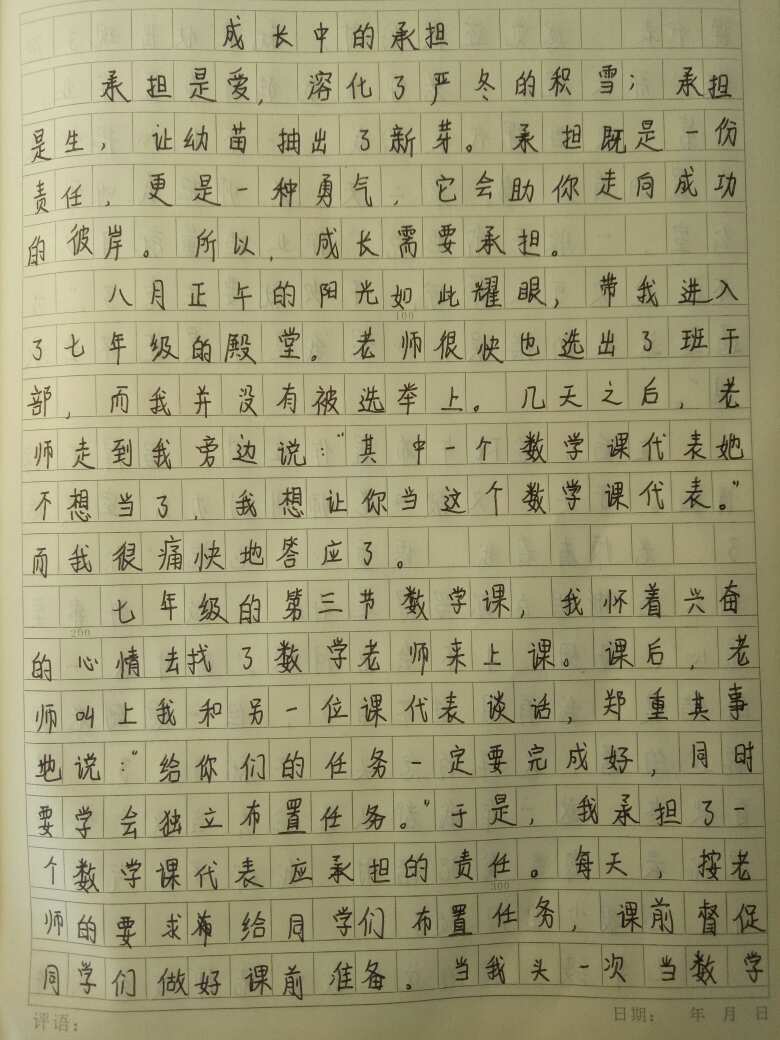 成长中的承担
承担是爱，溶化了严冬的积雪；承担
是生，让幼苗抽出了新芽。承担既是一份
责任，更是一种勇气，它会助你走向成功
的彼岸。所以，成长需要承担。
八月正午的阳光如此耀眼，带我进入
100
了七年级的殿堂。老师很快也选出了班干
部，而我并没有被选举上。几天之后，老
师走到我旁边说："其中一个数学课代表她
不想当了，我想让你当这个数学课代表。"
而我很痛快地答应了。
七年级的第三节数学课，我怀着兴奋
200
的心情去找了数学老师来上课。课后，老
师叫上我和另一位课代表谈话，郑重其事
地说："给你们的任务一定要完成好，同时
要学会独立布置任务。"于是，我承担了一
个数学课代表应承担的责任。每天，按老
300
师的要求给同学们布置任务，课前督促
同学们做好课前准备。当我头一次当数学
评语：
日期： 年 月 日